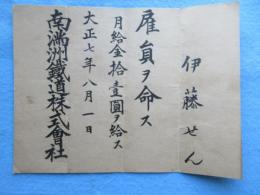 伊藤せん
雇員ヲ命ス
月給金拾壹圓ヲ給ス
大正七年八月一日
南滿洲鐵道株式會社